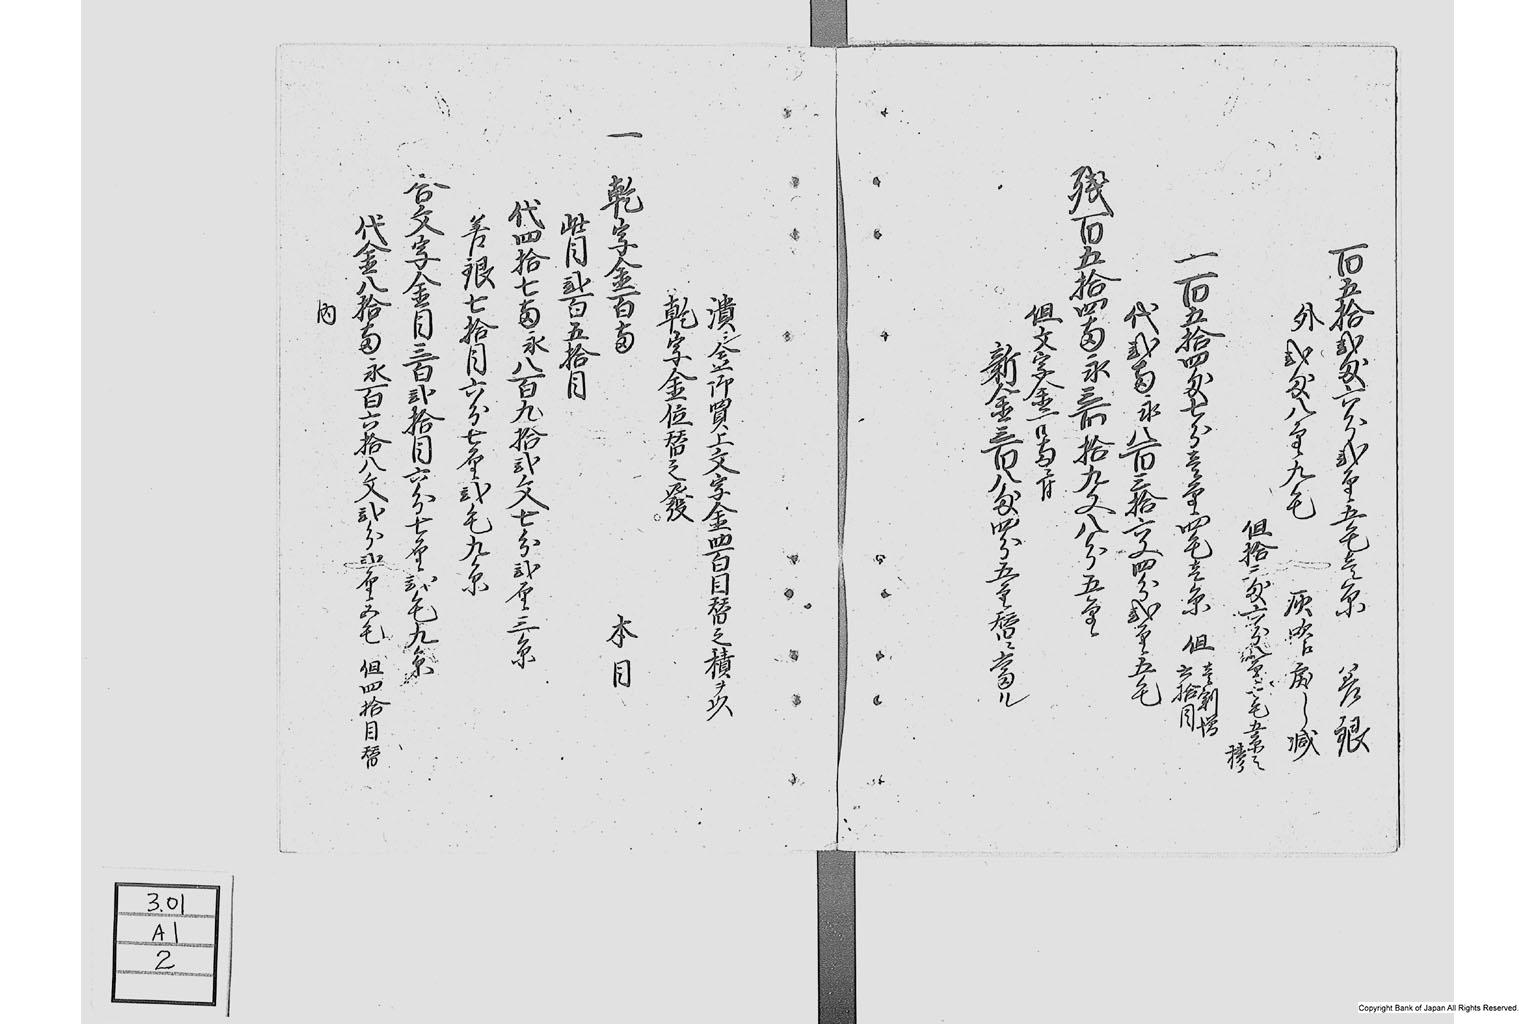 百五拾弐匁六分弐厘五毛壱糸 差銀
外弐匁八厘九毛 灰吹痛し減
但拾三匁六分
一百五拾四匁七分壱厘四毛壱糸 但 壱割増 六拾目
代弐両永八百三拾六文四分弐厘五毛
残百五拾四両永三百拾九文八分五厘
但文字金百両ニ付
新金三百八匁四分五厘替ニ当ル
潰金御買上文字金四百目替之積ヲ以
乾字金位替之發
一 乾字金百両 本目
此目弐百五拾目
代四拾七両永八百九拾弐文七分弐厘三糸
差銀七拾目六分七厘弐毛九糸
合文字金目三百弐拾目六分七厘弐毛九糸
代金八拾両永百六拾八文弐分弐厘五毛 但四拾目替
内
3.01
A1
2
Copyright Bank of Japan All Rights Reserved.